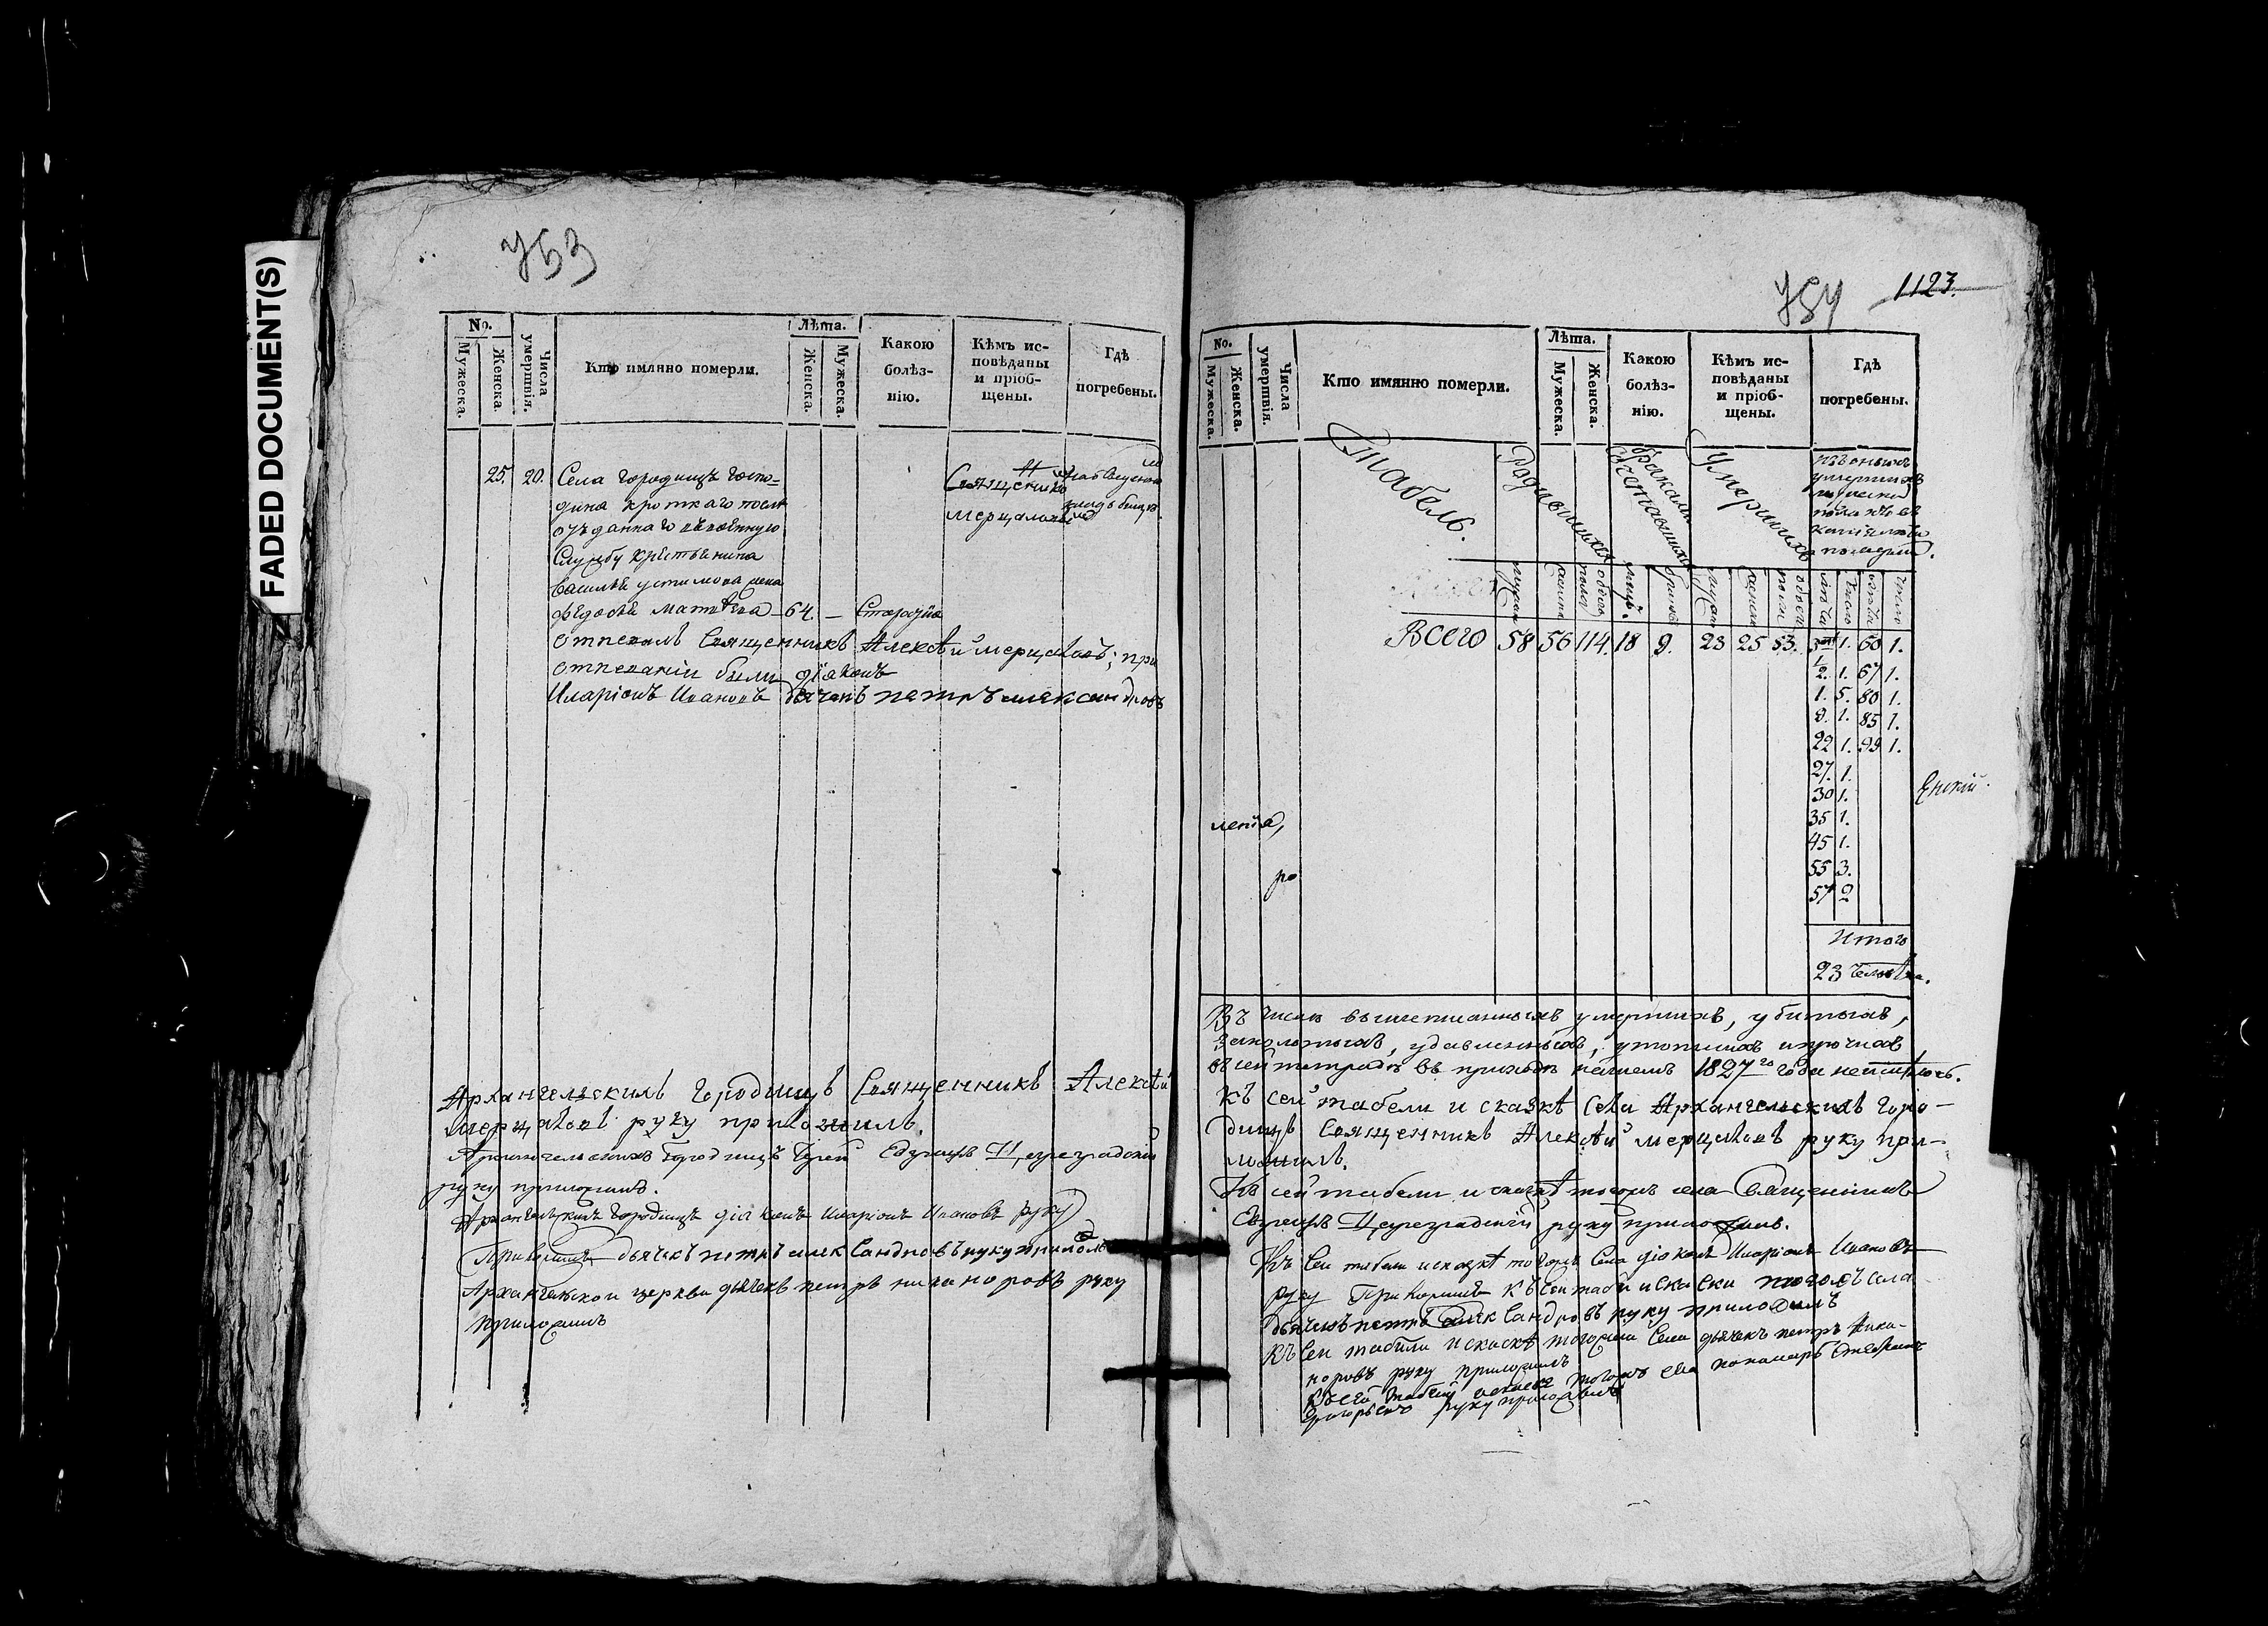 FADED DOCUMENT(S)
753
No.
Мужеска.
Женска.
Числа умертвія.
Кто имянно померли.
Лѣта.
Женска.
Мужеска.
Какою болѣз-
нію.
Кѣмъ ис-
повѣданы
и пріоб-
щены.
Гдѣ
погребены.
25. 20. Села городищъ госпо=
дина кроткаго послѣ
отъданнаго въ военную
службу крестьянина
василья устимова жена
федосья матвѣева 64. — Старостію
Священникомъ
мерцаловымъ
отпевалъ Священникъ Алексѣй мерцаловъ; при
отпеваніи были діаконъ
Иларіонъ Ивановъ дьячекъ петръ александровъ
Архангельскихъ Городищъ Священникъ Алексѣй
мерцаловъ руку приложилъ.
Архангельскихъ Городищъ Іерей
руку приложилъ.
Архангельскихъ Городищъ діаконъ Иларіонъ Ивановъ руку
Приложилъ дьячекъ петръ александровъ руку приложилъ
Архангельской церкви дьячекъ петръ никаноровъ руку
приложилъ
754
1123.
No.
Мужеска.
Женска.
Числа умертвія.
Кто имянно померли.
Лѣта.
Мужеска.
Женска.
Какою
болѣз-
нію.
Кѣмъ ис-
повѣданы
и пріоб-
щены.
Гдѣ
погребены.
Табель.
Родившихся
бракомъ сочетавшихся
Умершихъ
изъ оныхъ
умершихъ
мужеска
пола
Всего 58 56 114. 18 9. 23 25 53. 1. 60 1.
2. 1. 67 1.
1. 5. 80 1.
9. 1. 85 1.
22 1. 99 1.
27. 1.
30 1.
35 1.
45 1.
55 3.
57 2
ленія,
ро
Итого
23 человѣка.
Въ числѣ вышеписанныхъ умершихъ, убитыхъ,
заколотыхъ, удавленныхъ, утопшихъ и прочихъ
въ сей тетради въ приходѣ нашемъ 1827го года неимѣлось.
Къ сей табели и сказкѣ села Архангельскихъ Горо-
дищъ Священникъ Алексѣй мерцаловъ руку при-
ложилъ.
Къ сей табели и сказкѣ тогожъ села Священникъ
руку приложилъ.
Къ сей табели и сказкѣ тогожъ Села діаконъ Иларіонъ Ивановъ
руку Приложилъ Къ сей табели и скаски тогожъ села
дьячекъ петръ александровъ руку приложилъ
Къ сей табели и скаскѣ тогожъ Села дьячекъ петръ Ника-
норовъ руку приложилъ
Къ сей табели тогожъ села понамарь
руку приложилъ